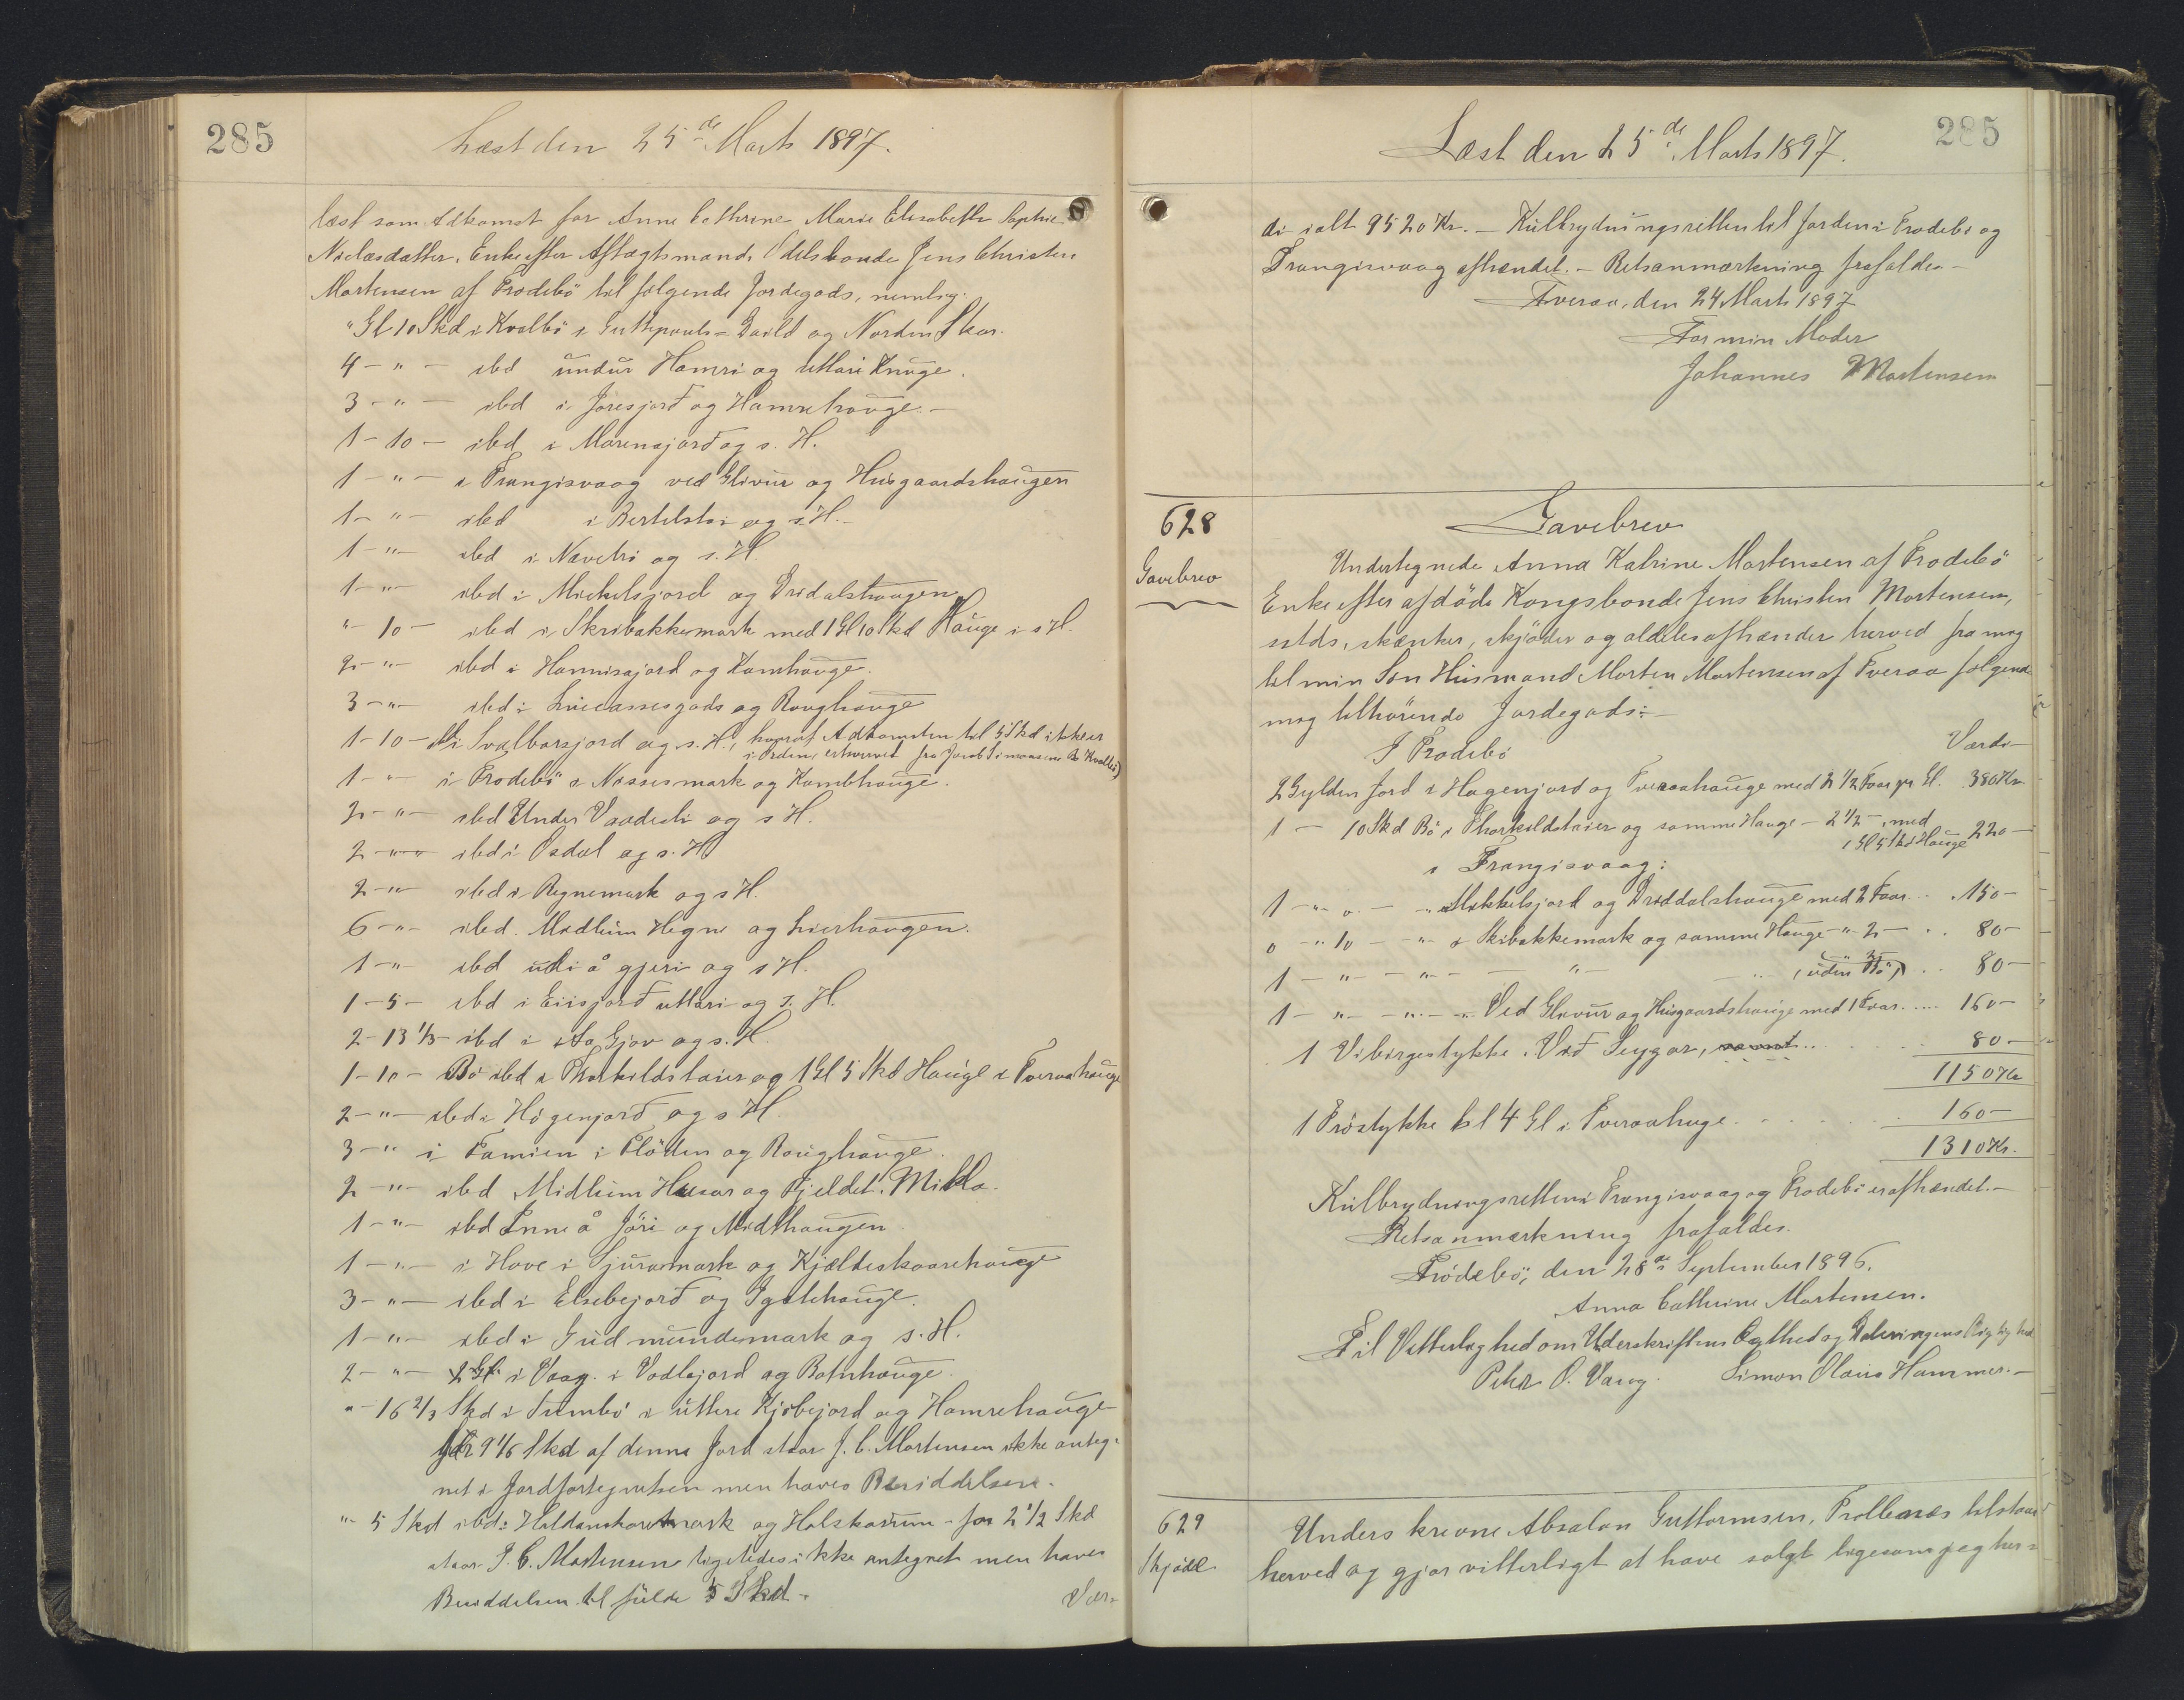 285
Læst den 25de Marts 1897.
læst som Adkomst for Anne Cathrine Marie Elisabeth Sophie
Nielasdatter, Enke efter Aftægtsmand, Odelsbonde Jens Christen
Mortensen af Frodebö til følgende Jordegods, nemlig:
" Gl 10 Skd i Kvalbö i Guttepouls-Gaild og Norden Skar.
4 - " - ibd undur Hamri og uttari Knüge.
3 - " - ibd i Joresjorð og Hamrehauge. -
1 - 10 - ibd i Marensjorð og s. H.
1 - " - i Frangisvaag ved Glivur og Husgaardshaugen
1 - " - ibd i Bertelstoi og s. H. -
1 - " - ibd i Navetri og s. H
1 - " - ibd i Mickelsjord og Dridalshaugen
" - 10 - ibd i Skribakkemark med 1 Gl 10 Skd Hauge i s H.
2 - " - ibd i Hannisajord og Kamhauge.
3 - " - ibd i Lucassesgods og Roughauge
1 - 10 - ibd i Svalbarsjord og s. H., hvoraf Adkomsten til 5 Skd ikke er
i Orden, erhvervet fra Jacob Simonsen Bö Kvalbö)
1 - " - i Frodebö i Nessesmark og Kambhauge.
2 - " - ibd Under Vaadesli og s H.
2 - " - ibd i Ösdal og s. H
2 - " - ibd i Regnemark og s H.
6 - " - ibd. Midlum Hegne og Lierhaugen.
1 - " - ibd uti å gjeri og s H.
1 - 5 - ibd i Eiisjorð uttari og s. H.
2 - 13 1/3 - ibd i Aa Gjov og s. H.
1 - 10 - Bö ibd i Thorkildstaier og 1 Gl 5 Skd Hauge i Tveraahauge
2 - " - ibd i Högenjorð og s H.
3 - " i Famien i Flöden og Roughauge.
2 - " - ibd Midlum Husar og Fjeldet Mikla.
1 - " - ibd Inne å Jöri og Midthaugen.
1 - " - i Hove i Sjuramark og Kjeldeskaarehauge
3 - " - ibd i Elsebejorð og Igatehauge.
1 - " - ibd i Gudmundemark og s. H.
2 - " - 2 Gl i Vaag i Vadlejord og Botnhauge.
" - 16 2/3 Skd i Sumbö i üttere Kjöbejord og Hamrehauge
for 9 1/6 Skd af denne Jord staar J. C. Mortensen ikke anteg=
net i Jordfortegnelsen men haves Besiddelsen.
" - 5 Skd ibd i Haldanskoremark og Halskorum - for 2 1/2 Skd
staar J. C. Mortensen ligeledes ikke antegnet men haves
Besiddelsen til fulde 5 Skd. -
Vær=
285
Læst den 25de Marts 1897.
di ialt 9520 Kr. - Kulbrydningsretten til Jorden i Frodebö og
Frangisvaag afhændet. - Retsanmærkning frafaldes -
Tveraa, den 24 Marts 1897
For min Moder
Johannes Mortensen
628
Gavebrev
Gavebrev
Undertegnede Anna Katrine Mortensen af Frodebö
Enke efter afdöde Kongsbonde Jens Christen Mortensen,
sstds, skænker, skjöder og aldeles afhænder herved fra mig
til min Sön Husmand Morten Mortensen af Tveraa følgende
mig tilhörende Jordegods: -
I Frodebö
Værdi
2 Gylden Jord i Hagenjord og Tveraahauge med 2 1/2 Faar pr Gl. 380 Kr
1 - 10 Skd Bö i Thorkildstaier og samme Hauge - 2 1/2 -, med
1 Gl 5 Skd Hauge 220 -
i Frangisvaag:
1 - " o. - " - i Mikkelsjord og Driddalshauge med 2 Faar . . . 150 -
0 - " 10 - " - i Skibakkemark og samme Hauge - " 2 - . . 80 -
1 - " - " - - " - . . (uden Bö) . . 80 -
1 - " - " - " - Ved Glivur og Husgaardshauge med 1 Faar . . . . 160 -
1 Vibirgestykke, Við Seygar, . . . 80 -
1150 Kr
1 Fröstykke til 4 Gl i Tveraahuge . . . . . . 160 -
1310 Kr.
Kulbrydningsretten i Frangisvaag og Frodebö er afhændet. -
Retsanmærkning frafaldes.
Frödebö, den 28de September 1896.
Anna Cathrine Mortensen.
Til Vitterlighed om Underskriftens Ægthed og Dateringens Rigtighed
Peter O. Vang. Simon Olaus Hammer. -
629
Skjöde
Underskrevne Absalon Guttormsen, Trollenæs tilstaar
herved og gjör vitterligt at have solgt ligesom jeg her=